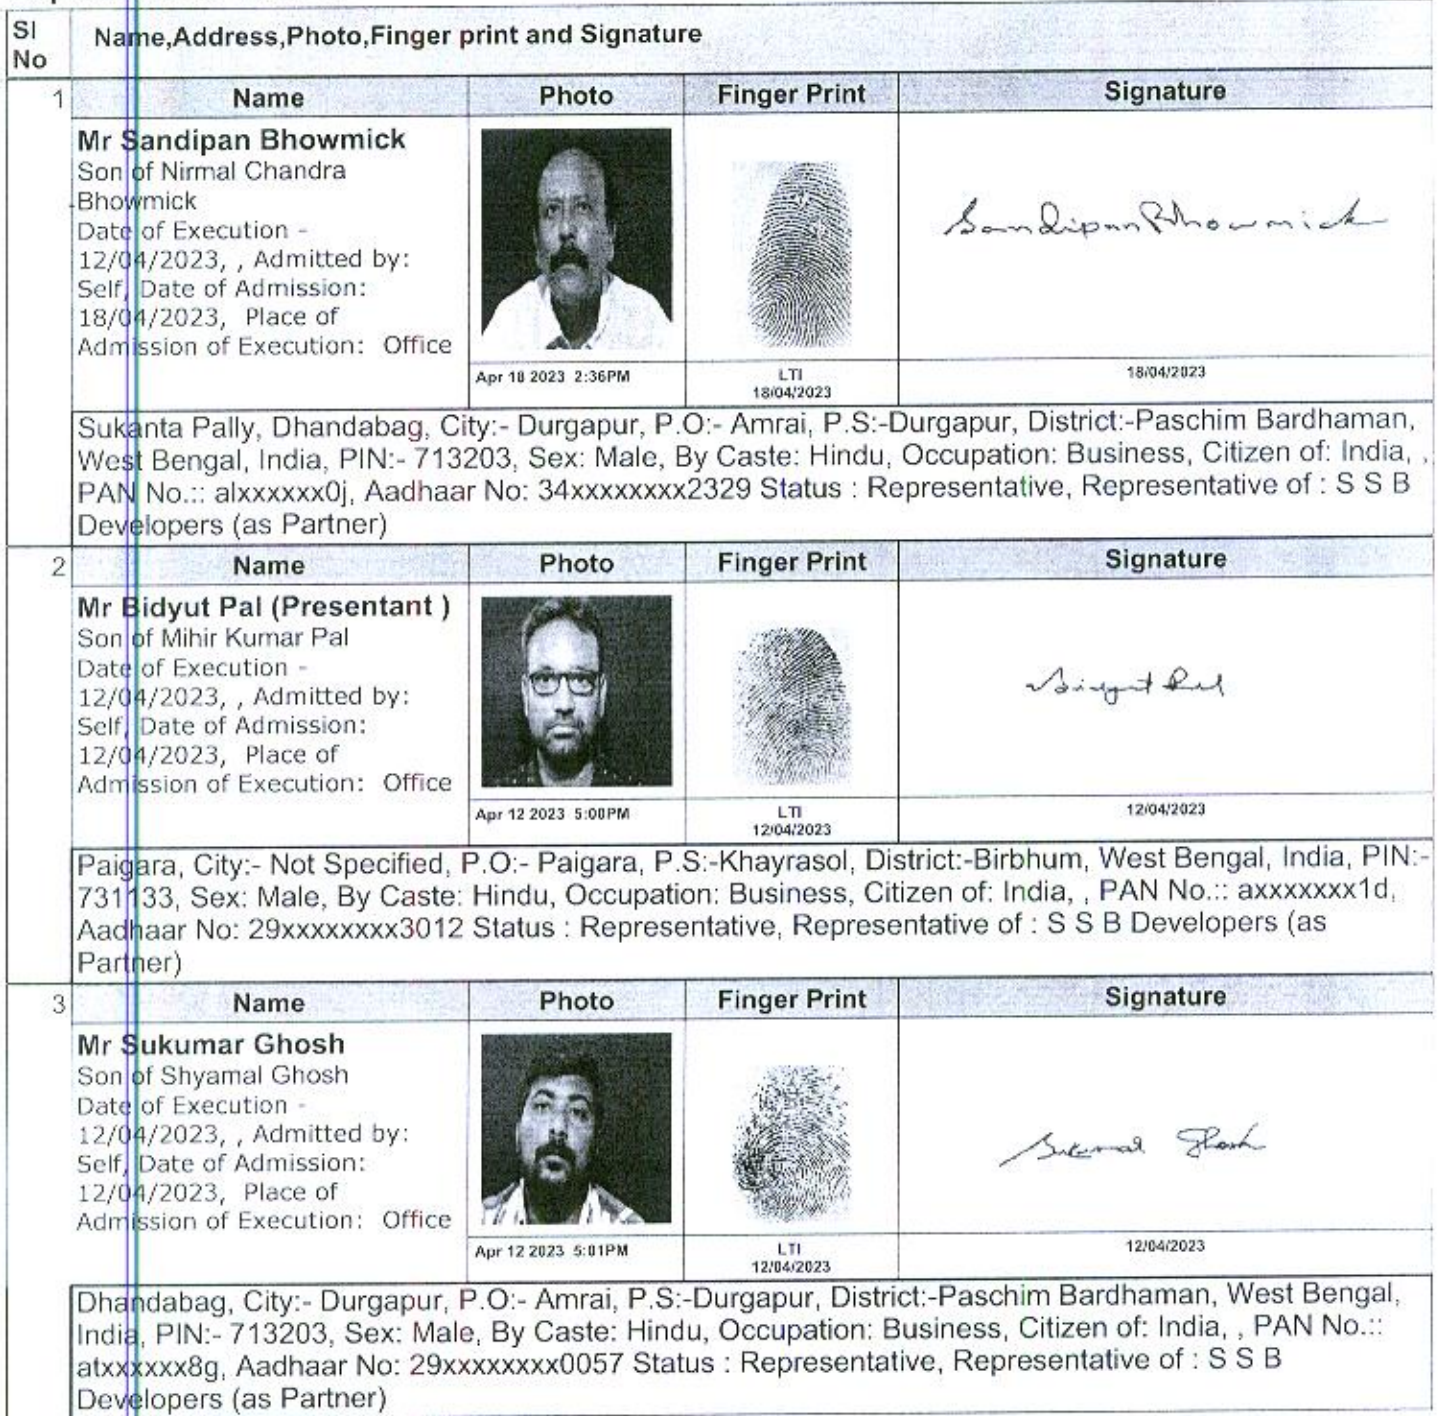 Sl
No
Name,Address,Photo,Finger print and Signature
1
Name Photo Finger Print Signature
Mr Sandipan Bhowmick
Son of Nirmal Chandra
Bhowmick
Date of Execution -
12/04/2023, , Admitted by:
Self, Date of Admission:
18/04/2023, Place of
Admission of Execution: Office
Sandipan Bhowmick
Apr 18 2023 2:36PM
LTI
18/04/2023
18/04/2023
Sukanta Pally, Dhandabag, City:- Durgapur, P.O:- Amrai, P.S:-Durgapur, District:-Paschim Bardhaman,
West Bengal, India, PIN:- 713203, Sex: Male, By Caste: Hindu, Occupation: Business, Citizen of: India, ,
PAN No.:: alxxxxxx0j, Aadhaar No: 34xxxxxxxx2329 Status : Representative, Representative of : S S B
Developers (as Partner)
2
Name Photo Finger Print Signature
Mr Bidyut Pal (Presentant )
Son of Mihir Kumar Pal
Date of Execution -
12/04/2023, , Admitted by:
Self, Date of Admission:
12/04/2023, Place of
Admission of Execution: Office
Bidyut Pal
Apr 12 2023 5:00PM
LTI
12/04/2023
12/04/2023
Paigara, City:- Not Specified, P.O:- Paigara, P.S:-Khayrasol, District:-Birbhum, West Bengal, India, PIN:-
731133, Sex: Male, By Caste: Hindu, Occupation: Business, Citizen of: India, , PAN No.:: axxxxxxx1d,
Aadhaar No: 29xxxxxxxx3012 Status : Representative, Representative of : S S B Developers (as
Partner)
3
Name Photo Finger Print Signature
Mr Sukumar Ghosh
Son of Shyamal Ghosh
Date of Execution -
12/04/2023, , Admitted by:
Self, Date of Admission:
12/04/2023, Place of
Admission of Execution: Office
Ghosh
Apr 12 2023 5:01PM
LTI
12/04/2023
12/04/2023
Dhandabag, City:- Durgapur, P.O:- Amrai, P.S:-Durgapur, District:-Paschim Bardhaman, West Bengal,
India, PIN:- 713203, Sex: Male, By Caste: Hindu, Occupation: Business, Citizen of: India, , PAN No.::
atxxxxxx8g, Aadhaar No: 29xxxxxxxx0057 Status : Representative, Representative of : S S B
Developers (as Partner)